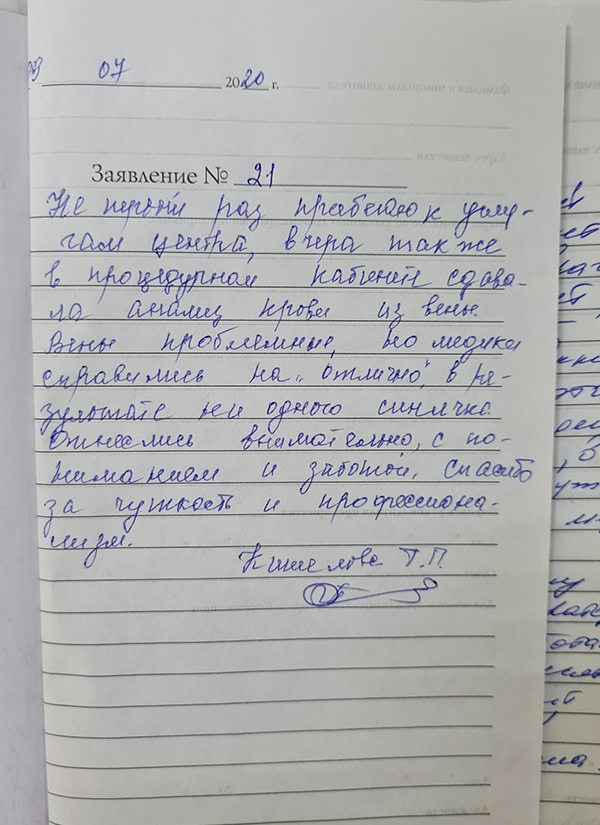 07 2020 г.
Заявление № 21
Не первый раз прибегаю к услу-
гам центра, вчера также
в процедурном кабинете сдава-
ла анализ крови из вены.
Вены проблемные, но медики
справились на „отлично", в ре-
зультате ни одного синячка.
Отнеслись внимательно, с по-
ниманием и заботой. Спасибо
за чуткость и профессиона-
лизм.
Т.П.